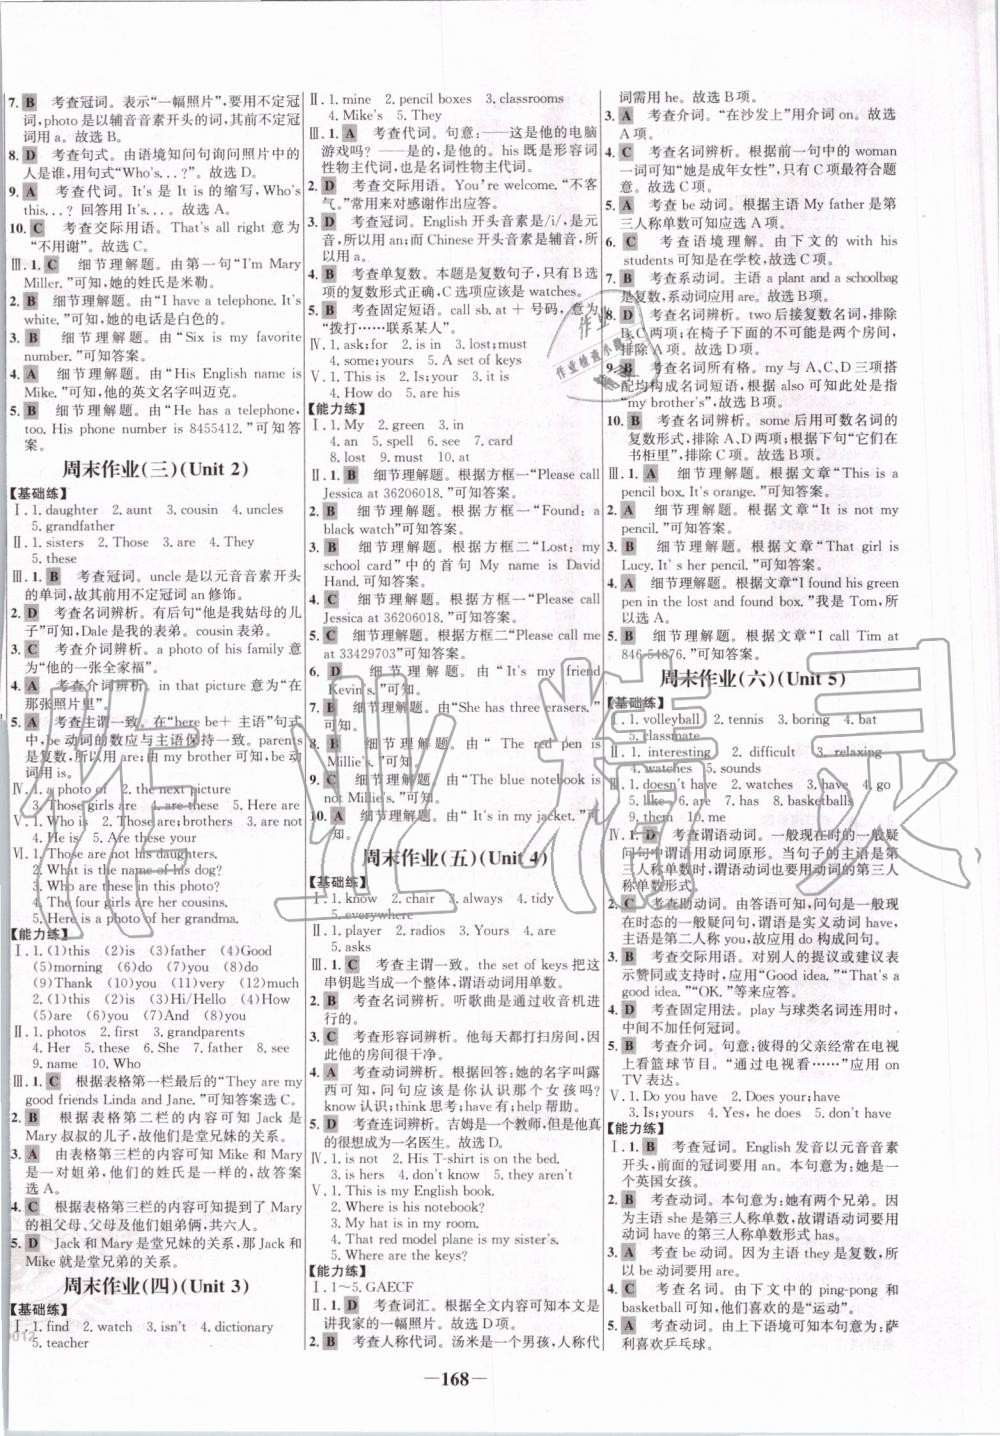 7. B 考查冠词。表示“一幅照片”,要用不定冠
词,photo是以辅音音素开头的词,其前不定冠
词用a。故选B。
8. D 考查句式。由语境知问句询问照片中的
人是谁,用句式“Who's...?”。故选D。
9. A 考查代词。It's是It is的缩写,Who's
this...? 回答用It's...。故选A。
10. C 考查交际用语。That's all right意为
“不用谢”。故选C。
Ⅲ. 1. C 细节理解题。由第一句“I'm Mary
Miller.”可知,她的姓氏是米勒。
2. B 细节理解题。由“I have a telephone. It's
white.”可知,她的电话是白色的。
3. B 细节理解题。由“Six is my favorite
number.”可知答案。
4. A 细节理解题。由“His English name is
Mike.”可知,他的英文名字叫迈克。
5. B 细节理解题。由“He has a telephone,
too. His phone number is 8455412.”可知答
案。
周末作业(三)(Unit 2)
【基础练】
Ⅰ. 1. daughter 2. aunt 3. cousin 4. uncles
5. grandfather
Ⅱ. 1. sisters 2. Those 3. are 4. They
5. these
Ⅲ. 1. B 考查冠词。uncle是以元音音素开头
的单词,故其前用不定冠词an修饰。
2. D 考查名词辨析。有后句“他是我姑母的儿
子”可知,Dale是我的表弟。cousin表弟。
3. C 考查介词辨析。a photo of his family意
为“他的一张全家福”。
4. A 考查介词辨析。in that picture意为“在
那张照片里”。
5. A 考查主谓一致。在“here be+主语”句式
中,be动词的数应与主语保持一致。parents
是复数,所以用are;由my brother可知,be动
词用is。
Ⅳ. 1. a photo of 2. the next picture
3. Those girls are 4. are these 5. Here are
Ⅴ. 1. Who is 2. Those are;brothers 3. are not
4. He is 5. Are these your
Ⅵ. 1. Those are not his daughters.
2. What is the name of his dog?
3. Who are these in this photo?
4. The four girls are her cousins.
5. Here is a photo of her grandma.
【能力练】
Ⅰ. 1. (1)this (2)is (3)father (4)Good
(5)morning (6)do (7)you (8)do
(9)Thank (10)you (11)very (12)much
2. (1)this (2)is (3)Hi/Hello (4)How
(5)are (6)you (7)And (8)you
Ⅱ. 1. photos 2. first 3. grandparents
4. Her 5. these 6. She 7. father 8. see
9. name 10. Who
Ⅲ. 1. C 根据表格第一栏最后的“They are my
good friends Linda and Jane.”可知答案选C。
2. B 根据表格第二栏的内容可知Jack是
Mary叔叔的儿子,故他们是堂兄妹的关系。
3. A 由表格第三栏的内容可知Mike和Mary
是一对姐弟,他们的姓氏是一样的,故答案
选A。
4. C 根据表格第三栏的内容可知提到了Mary
的祖父母、父母及他们姐弟俩,共六人。
5. D Jack和Mary是堂兄妹的关系,那Jack和
Mike就是堂兄弟的关系。
周末作业(四)(Unit 3)
【基础练】
Ⅰ. 1. find 2. watch 3. isn't 4. dictionary
5. teacher
Ⅱ. 1. mine 2. pencil boxes 3. classrooms
4. Mike's 5. They
Ⅲ. 1. A 考查代词。句意:——这是他的电脑
游戏吗? ——是的,是他的。his既是形容词
性物主代词,也是名词性物主代词。
2. D 考查交际用语。You're welcome.“不客
气。”常用来对感谢作出应答。
3. D 考查冠词。English开头音素是/i/,是元
音,所以用an;而Chinese开头为辅音音素,所
以用a。
4. B 考查单复数。本题是复数句子,只有B选
项的复数形式正确,C选项应该是watches。
5. B 考查固定短语。call sb. at + 号码,意为
“拨打……联系某人”。
Ⅳ. 1. ask;for 2. is in 3. lost;must
4. some;yours 5. A set of keys
Ⅴ. 1. aren't 2. Is;your 3. it is
4. How do 5. are his
【能力练】
Ⅰ. 1. My 2. green 3. in
4. an 5. spell 6. see 7. card
8. lost 9. must 10. at
Ⅱ. 1. B 细节理解题。根据方框一“Please call
Jessica at 36206018.”可知答案。
2. B 细节理解题。根据方框一“Found: a
black watch”可知答案。
3. B 细节理解题。根据方框二“Lost: my
school card”中的首句My name is David
Hand.可知答案。
4. C 细节理解题。根据方框一“Please call
Jessica at 36206018.”可知答案。
5. C 细节理解题。根据方框二“Please call me
at 33429703”可知答案。
6. D 细节理解题。由“It's my friend
Kevin's.”可知。
7. B 细节理解题。由“She has three erasers.”
可知。
8. B 细节理解题。由“The red pen is
Millie's.”可知。
9. C 细节理解题。由“The blue notebook is
not Millie's.”可知。
10. A 细节理解题。由“It's in my jacket.”可
知。
周末作业(五)(Unit 4)
【基础练】
Ⅰ. 1. know 2. chair 3. always 4. tidy
5. everywhere
Ⅱ. 1. player 2. radios 3. Yours 4. are
5. asks
Ⅲ. 1. C 考查主谓一致。the set of keys把这
串钥匙当成一个整体,故谓语动词用单数。
2. B 考查名词辨析。听歌曲是通过收音机进
行的。
3. C 考查形容词辨析。他每天都打扫房间,
因此他的房间很干净。
4. A 考查动词辨析。根据回答:她的名字叫露
西可知,问句应该是你认识那个女孩吗?
know认识;think思考;have有;help帮助。
5. D 考查连词辨析。吉姆是一个教师,但是他真
的很想成为一名医生。故选D。
Ⅳ. 1. is not 2. His T-shirt is on the bed.
3. is hers 4. don't know 5. they aren't
Ⅴ. 1. This is my English book.
2. Where is his notebook?
3. My hat is in my room.
4. That red model plane is my sister's.
5. Where are the keys?
【能力练】
Ⅰ. 1～5. GAECF
Ⅱ. 1. D 考查词汇。根据全文内容可知本文是
讲我家的一幅照片。故选D项。
2. B 考查人称代词。汤米是一个男孩,人称代
词需用he。故选B项。
3. A 考查介词。“在沙发上”用介词on。故选
A项。
4. C 考查名词辨析。根据前一句中的woman
一词可知“她是成年女性”,只有C项最符合题
意。故选C项。
5. A 考查be动词。根据主语My father是第
三人称单数可知应选A项。
6. C 考查语境理解。由下文的with his
students可知是在学校。故选C项。
7. B 考查系动词。主语a plant and a schoolbag
是复数,系动词应用are。故选B项。
8. D 考查名词辨析。two后接复数名词,排除
B、C两项;在椅子下面的不可能是两个房间,
排除A项。故选D项。
9. B 考查名词所有格。my与A、C、D三项搭
配均构成名词短语,根据also可知此处是指
“my brother's”。故选B项。
10. B 考查名词辨析。some后用可数名词的
复数形式,排除A、D两项;根据下句“它们在
书柜里”,排除C项。故选B项。
Ⅲ. 1. A 细节理解题。根据文章“This is a
pencil box. It's orange.”可知答案。
2. A 细节理解题。根据文章“It is not my
pencil.”可知答案。
3. B 细节理解题。根据文章“That girl is
Lucy. It's her pencil.”可知答案。
4. A 细节理解题。根据文章“I found his green
pen in the lost and found box.”我是Tom,所
以选A。
5. B 细节理解题。根据文章“I call Tim at
846-54876.”可知答案。
周末作业(六)(Unit 5)
【基础练】
Ⅰ. 1. volleyball 2. tennis 3. boring 4. bat
5. classmate
Ⅱ. 1. interesting 2. difficult 3. relaxing
4. watches 5. sounds
Ⅲ. 1. doesn't have 2. watches 3. have 4. go
5. like 6. are 7. has 8. basketballs
9. them 10. me
Ⅳ. 1. D 考查谓语动词。一般现在时的一般疑
问句中谓语用动词原形。当句子的主语是第三
人称单数时,谓语动词也要用动词的第三人
称单数形式。
2. C 考查助动词。由答语可知,问句是一般现
在时态的一般疑问句,谓语是实义动词have,
主语是第二人称you,故应用do构成问句。
3. B 考查交际用语。对别人的提议或建议表
示赞同或支持时,应用“Good idea.”“That's a
good idea.”“OK.”等来应答。
4. D 考查固定用法。play与球类名词连用时,
中间不加任何冠词。
5. B 考查介词。句意:彼得的父亲经常在电视
上看篮球节目。“通过电视看……”应用on
TV表达。
Ⅴ. 1. Do you have 2. Does your;have
3. Is;yours 4. Yes, he does 5. don't have
【能力练】
Ⅰ. 1. B 考查冠词。English发音以元音音素
开头,前面的冠词要用an。本句意为:她是一
个英国女孩。
2. B 考查动词。本句意为:她有两个兄弟。因
为主语she是第三人称单数,故谓语动词要用
动词have的第三人称单数形式has。
3. A 考查be动词。因为主语they是复数,所
以be动词要用are。
4. C 考查名词。由下文中的ping-pong和
basketball可知,他们喜欢的是“运动”。
5. A 考查动词。由上下语境可知本句意为:萨
利喜欢乒乓球。
—168—
作业精灵